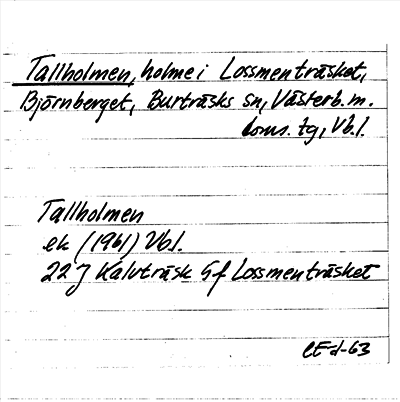 Tallholmen, holme i Lossmenträsket,
Björnberget, Burträsks sn, Västerb. m.
doms. tg, Vb. l.
Tallholmen
ek (1961) Vb.l.
22J Kalvträsk 5f Lossmenträsket
CE-d-63